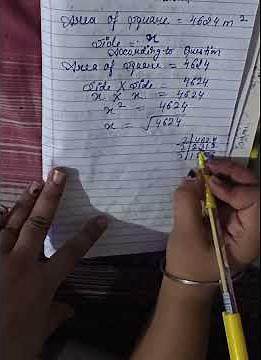 Area of square = 4624 m²
Side = x
According to Question
Area of square = 4624
Side × Side = 4624
x × x = 4624
x² = 4624
x = √4624
2
2
2